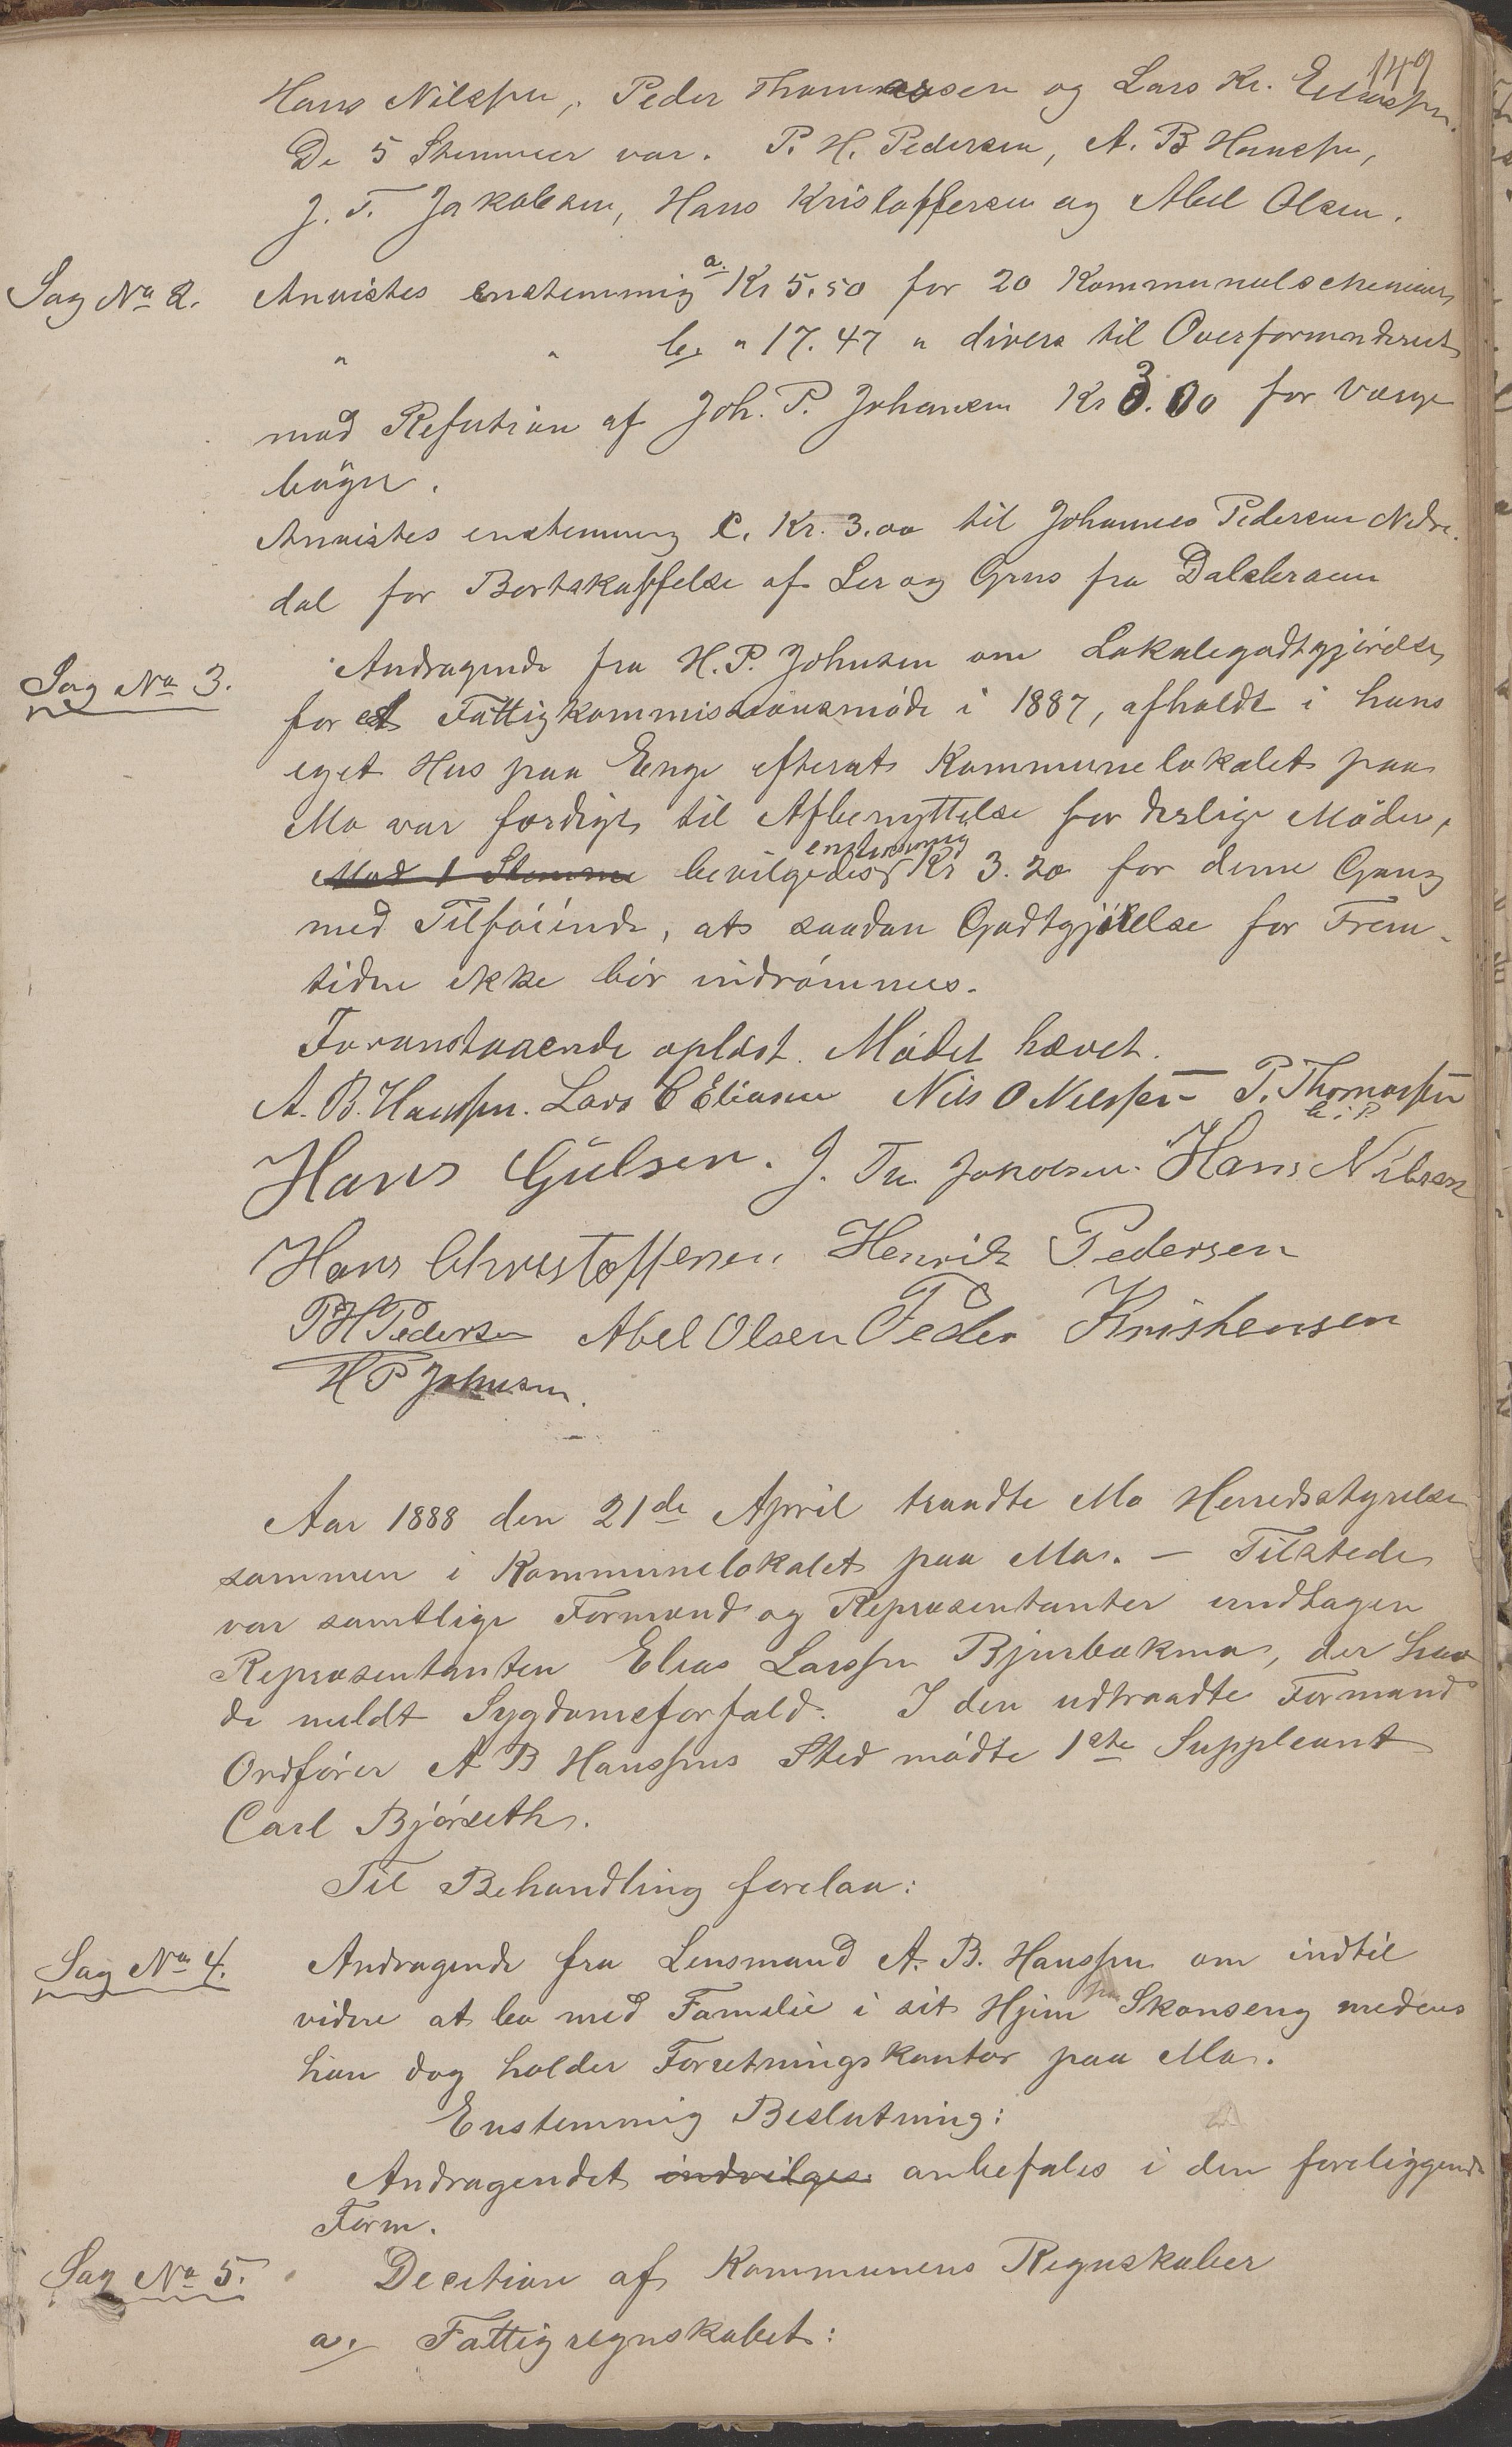 149
Hans Nilssen, Peder Thomassen og Lars Kr. Eliassen.
De 5 Stemmer var. P. H. Pedersen, A. B Hanssen,
J. T. Jakobsen, Hans Kristoffersen og Abel Olsen.
Sag No 2. Anvistes enstemmig a. Kr 5.50 for 20 Kommunalschemaer
" " b. " 17.47 " divers til Overformynderiet
mod Refution af Joh. P. Johansen Kr 3.00 for Værge
bøger.
Anvistes enstemmig C. Kr. 3.00 til Johannes Pedersen Nedre
dal for Bortskaffelse af Ler og Grus fra Dalsbroen
Sag No 3. Andragende fra H. P. Johnsen om Lokalegodtgjørelse
for et Fattigkommissionsmøde i 1887, afholdt i hans
eget Hus paa Enge efterat Kommunelokalet paa
Mo var færdigt til Afbenyttelse for deslige Møder,
Mod 1 Stemme bevilgedes enstemmig Kr 3.20 for denne Gang
med Tilføiende, at saadan Godtgjørelse for Frem-
tiden ikke bør indrømmes.
Foranstaaende oplæst. Mødet hævet.
A. B. Hanssen. Lars C Eliasen Nils O Nilssen P. Thomassen
Hans Gulsen. J. Tn. Jakobsen. Hans Nilsen
Hans Christoffersen Henrik Pedersen
P H Pedersen Abel Olsen Peder Kristensen
H P Johnsen.
Aar 1888 den 21de April traadte Mo Herredsstyrelse
sammen i Kommunelokalet paa Mo. — Tilstede
var samtlige Formænd og Repræsentanter undtagen
Repræsentanten Elias Larssen Bjurbækmo, der hav
de meldt Sygdomsforfald. I den udtraadte Formand
Ordfører A B Hanssens Sted mødte 1ste Suppleant
Carl Bjørseth.
Til Behandling forelaa:
Sag No 4. Andragende fra Lensmand A. B. Hanssen om indtil
videre at bo med Familie i sit Hjem paa Skonseng medens
han dog holder Forretningskontor paa Mo.
Enstemmig Beslutning:
Andragendet indvilges anbefales i den foreliggende
Form.
Sag No 5. Decition af Kommunens Regnskaber
a. Fattigregnskabet: